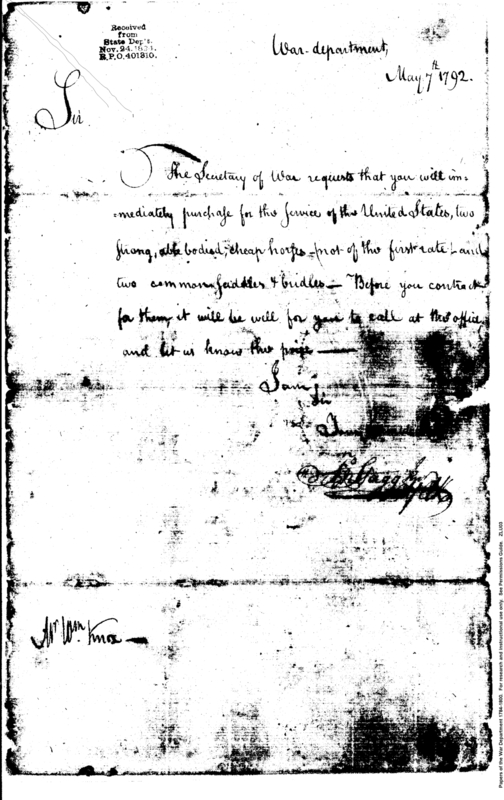 Received
from
State Dep't.
Nov. 24.
R.P.O. 401310.
War-department,
May 7th 1792.
Sir
The Secretary of War requests that you will im=
=mediately purchase for the service of the United States, two
strong, able bodied, cheap horses - not of the first rate - and
two common saddles & bridles - Before you contract
for them it will be well for you to call at the office
and let us know the price
I am
Sir
Mr Wm. Knox
Papers of the War Department 1784-1800. For research and instructional use only. See Permissions Guide. ZL100